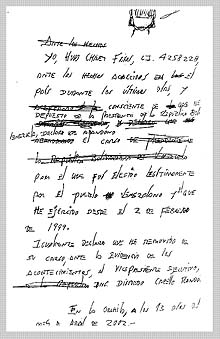 Ante los hechos
Yo, Hugo Chávez Frías, C.I. 4258228
ante los hechos acaecidos en el
país durante los últimos días, y
consciente de que he
depuesto de la Presidencia de la República
declaro he abandono
el cargo de
la República Bolivariana de Venezuela
por el que fui electo legítimamente
por el pueblo venezolano y que
he ejercido desde el 2 de febrero
de 1999.
Igualmente declaro que he removido de
su cargo, ante la evidencia de los
acontecimientos, al Vicepresidente Ejecutivo,
Diosdado Cabello Rondón
En la Orchila, a los 13 días del
mes de abril de 2002.-